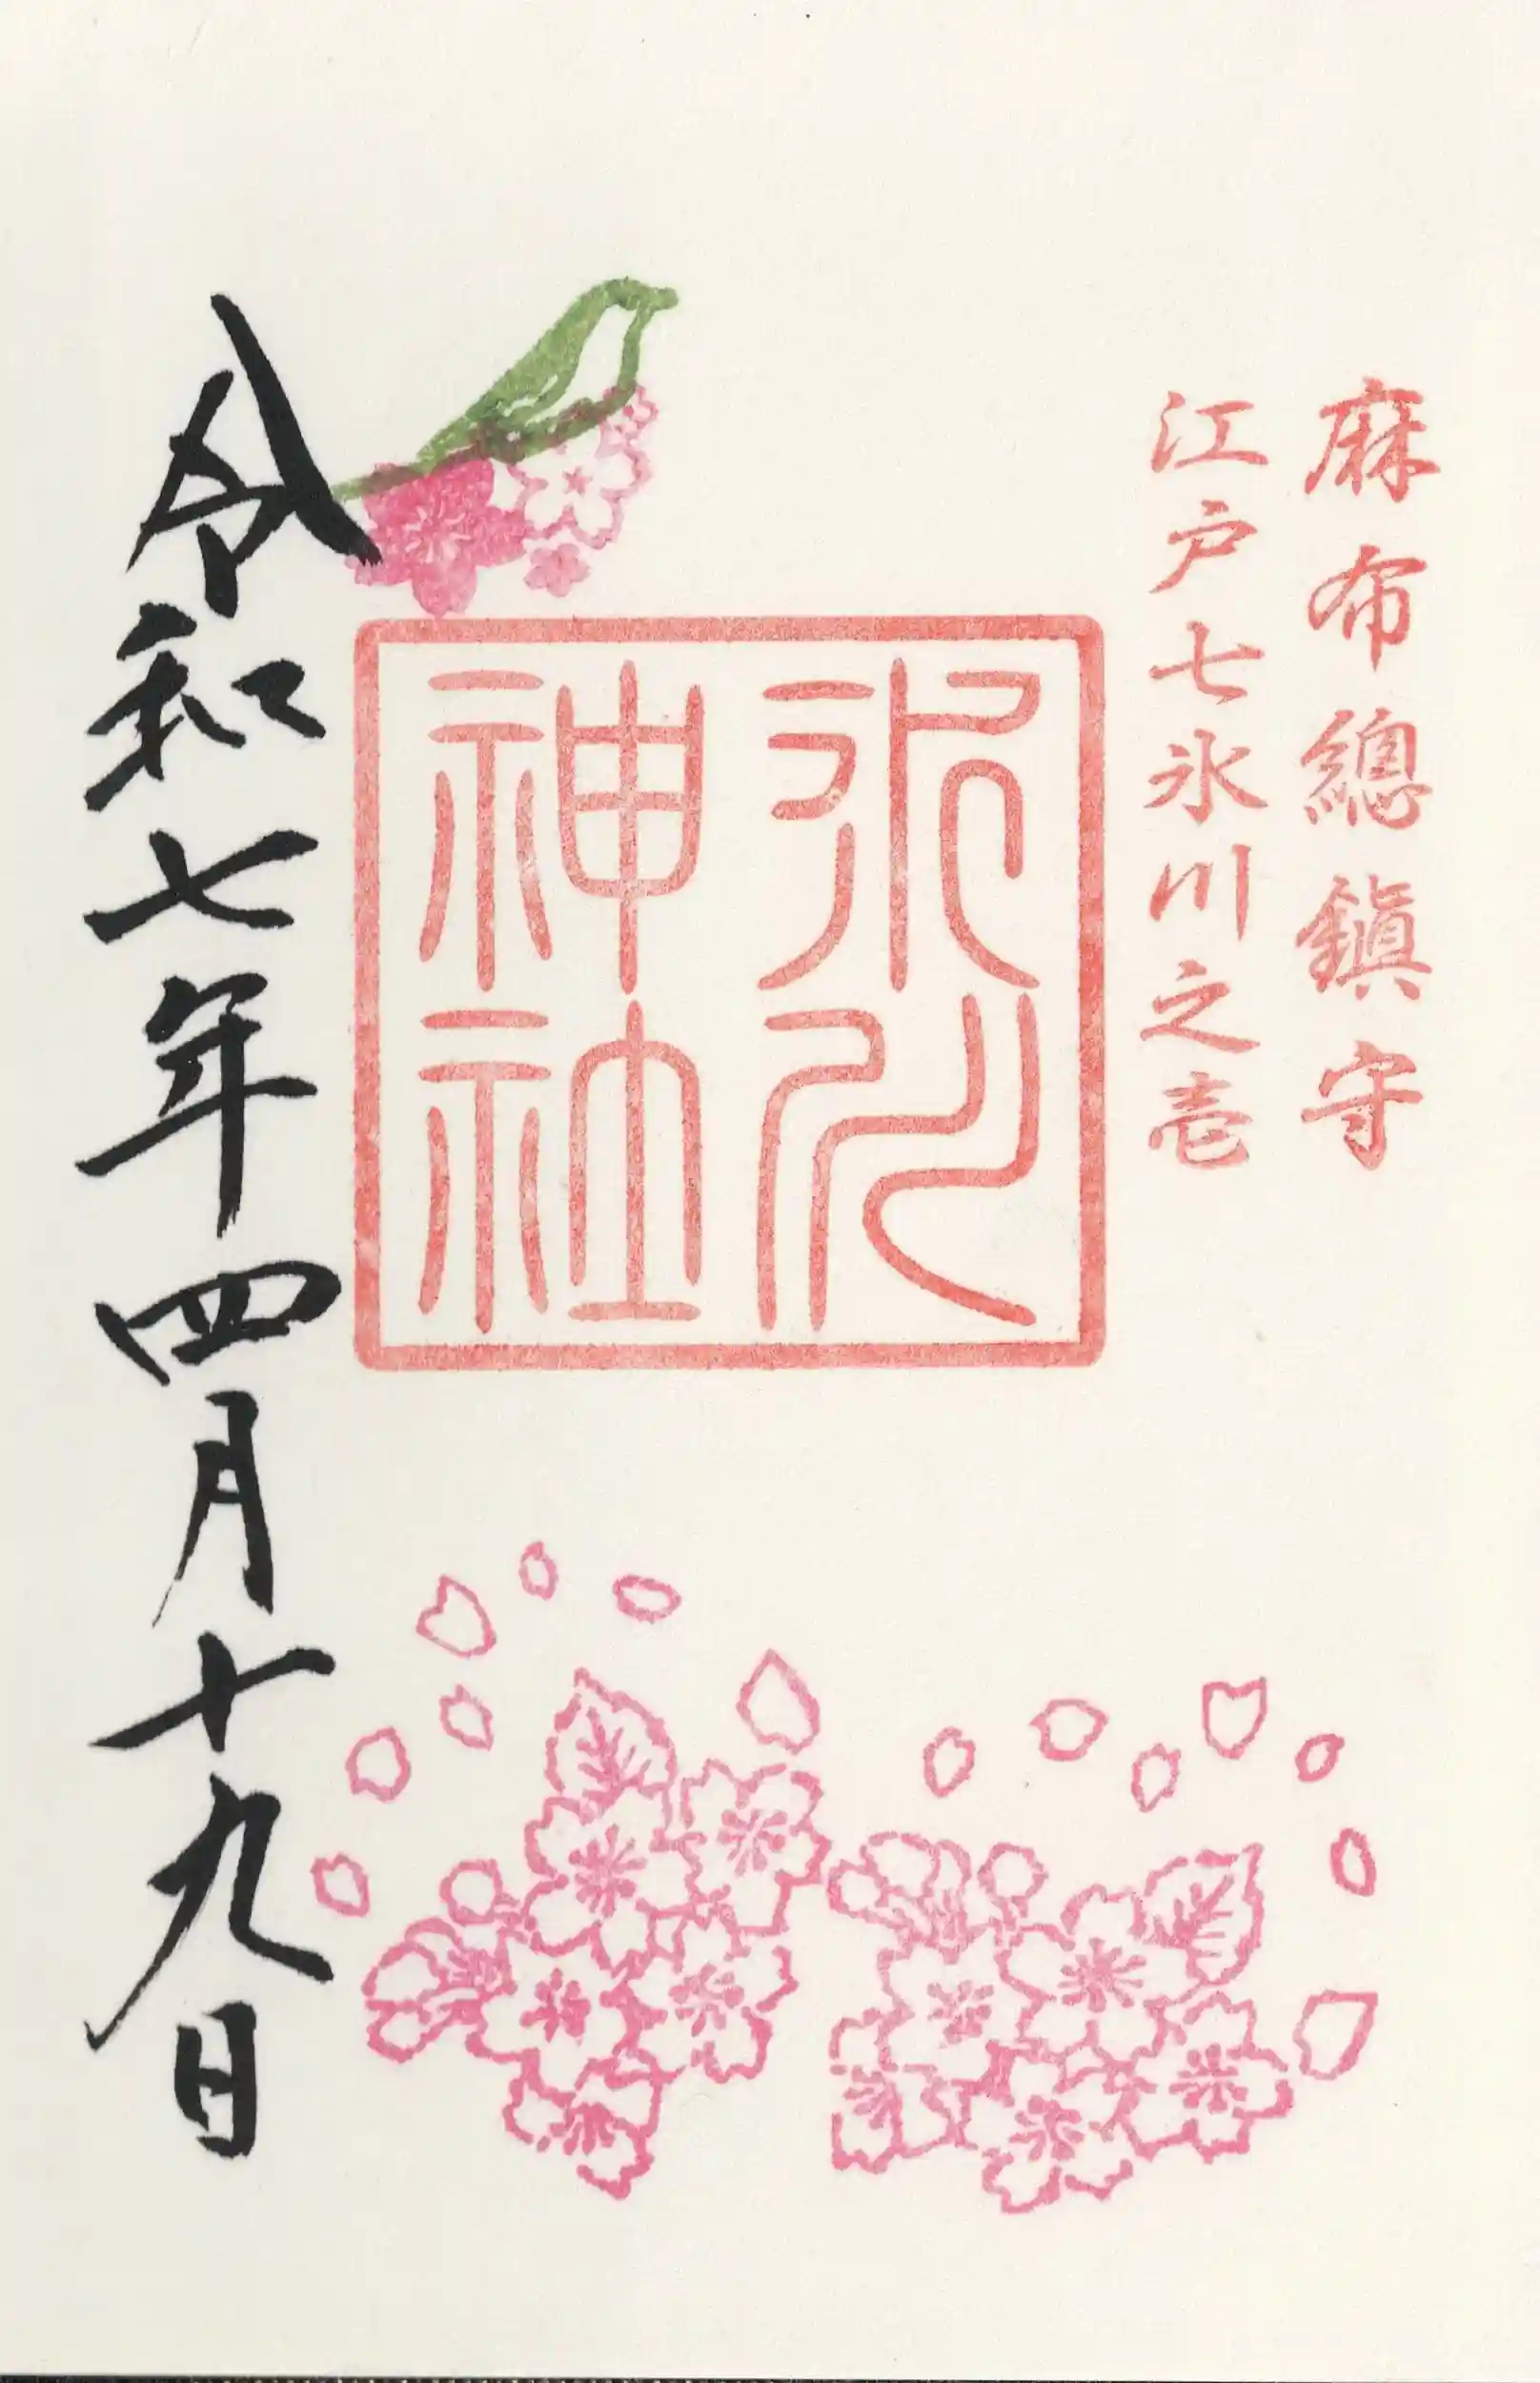 麻布總鎭守
江戸七氷川之壱
氷川
神社
令和七年四月十九日